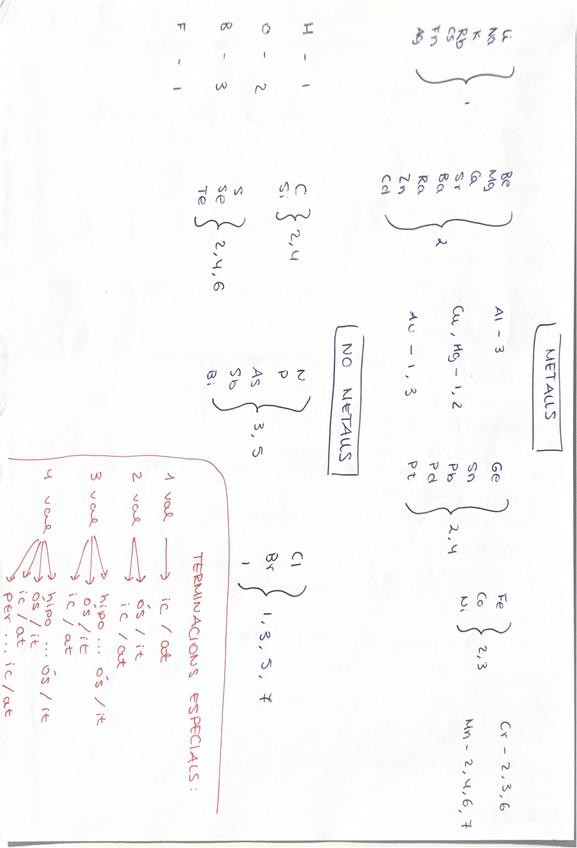 METALLS
Li
Na
K
Rb
Cs
Fn
Ag
} 1
Be
Mg
Ca
Sr
Ba
Ra
Zn
Cd
} 2
Al - 3
Cu, Hg - 1, 2
Au - 1, 3
Ge
Sn
Pb
Pd
Pt
} 2, 4
Fe
Co
Ni
} 2, 3
Cr - 2, 3, 6
Mn - 2, 4, 6, 7
NO METALLS
H - 1
O - 2
B - 3
F - 1
C
Si
} 2, 4
S
Se
Te
} 2, 4, 6
N
P
As
Sb
Bi
} 3, 5
Cl
Br
I
} 1, 3, 5, 7
TERMINACIONS ESPECIALS:
1 val → ic / at
2 val → ós / it
→ ic / at
3 val → hipo ... ós / it
→ ós / it
→ ic / at
4 val → hipo ... ós / it
→ ós / it
→ ic / at
→ per ... ic / at